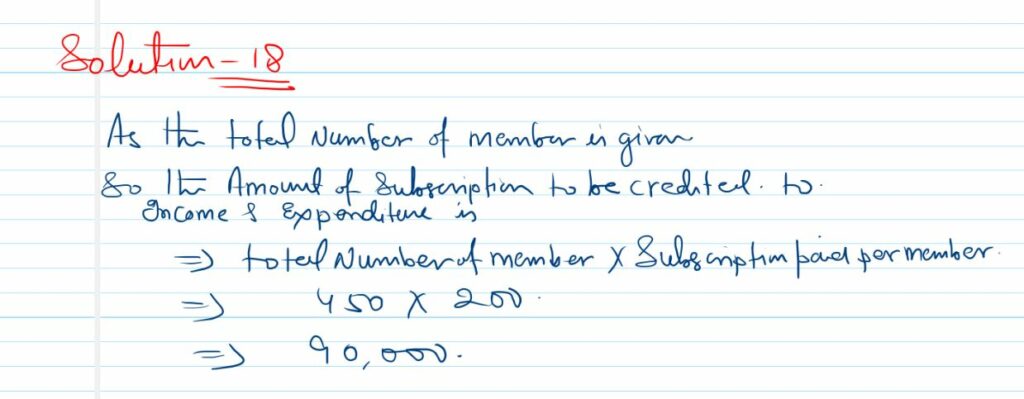 Solution - 18
As the total Number of member is given
So the Amount of Subscription to be credited. to.
Income & Expenditure is
=> total Number of member X Subscription paid per member.
=> 450 X 200.
=> 90,000.